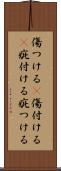 傷つける《傷付ける
《疵付ける疵つける